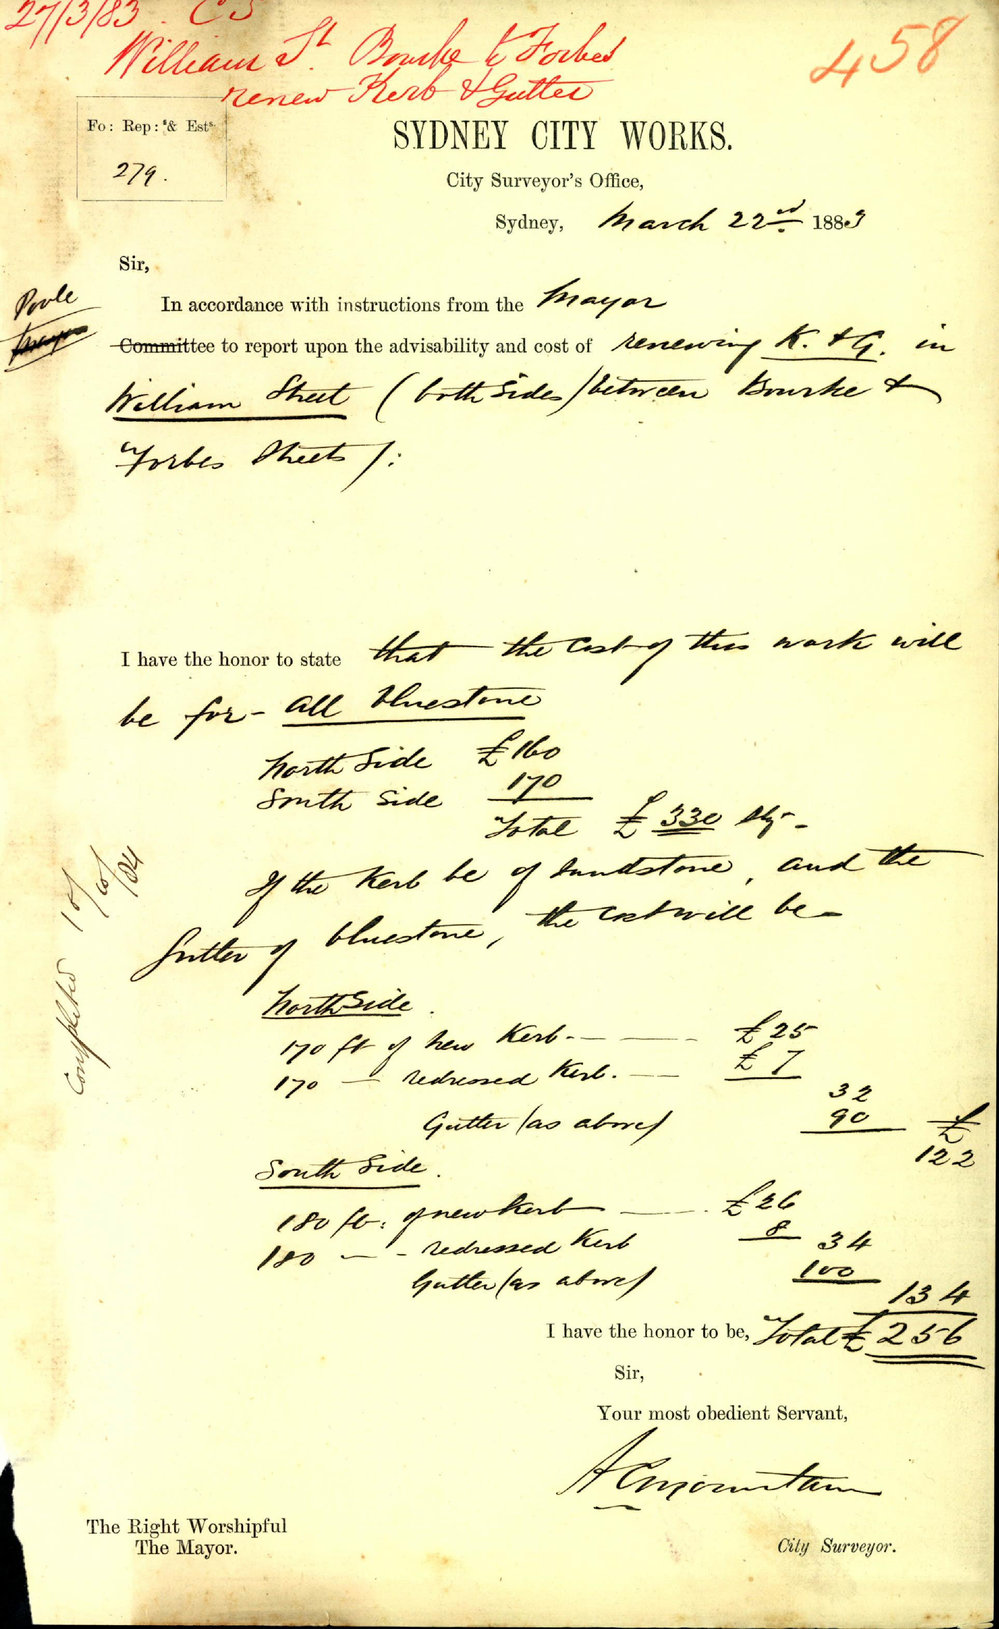 27/3/83. CS
William St. Bourke to Forbes
renew Kerb & Gutter
458
Fo: Rep:s & Ests.
279.
SYDNEY CITY WORKS.
City Surveyor's Office,
Sydney, March 22nd 1883
Sir,
Poole
In accordance with instructions from the Mayor
Committee to report upon the advisability and cost of renewing K. & G. in
William Street (both sides) between Bourke &
Forbes Streets):
I have the honor to state that the cost of this work will
be for - all bluestone
North Side £160
South Side 170
Total £330
If the Kerb be of Sandstone, and the
Gutter of bluestone, the cost will be -
North Side.
170 ft of new Kerb. - £25
170 — redressed Kerb. — £7
32
Gutter (as above) 90 £
122
South Side.
180 ft: of new Kerb — £26
180 — redressed Kerb 8 34
Gutter (as above) 100
134
I have the honor to be, Total £256
Sir,
Your most obedient Servant,
A C Mountain
The Right Worshipful
The Mayor.
City Surveyor.
Completed